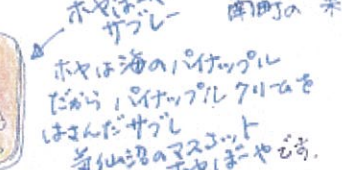 ホヤぼーや
サブレー
南町の
ホヤは海のパイナップル
だから パイナップルクリームを
はさんだサブレ
気仙沼のマスコット
ホヤぼーやです.